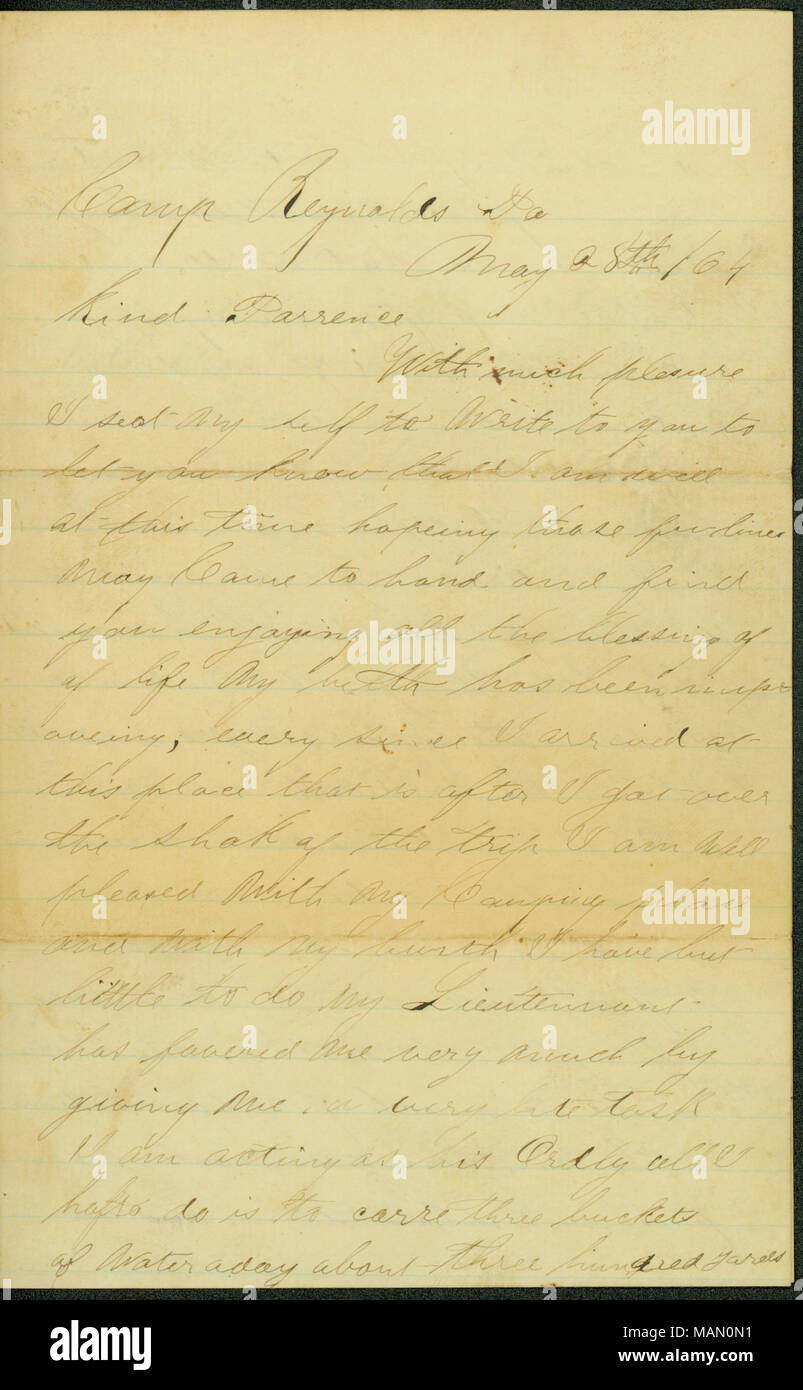 Camp Reynolds Pa
May 28th /64
Kind Parrence
With much plesure
I seat my self to write to you to
let you know that I am well
at this time hopeing those fu lines
may Came to hand and find
you enjoying all the blessing of
of life My helth has been impr
oveing, every since I arrived at
this place that is after I got over
the shok of the trip I am well
pleased with my Camping
and with my burth I have but
little to do my Lieutennant
has favered me very much by
giving me a very lite task
I am acting as his Ordly all I
hafto do is to carre three buckets
of water a day about three hundred yards
alamy
www.alamy.com
Image ID: MAN0N1